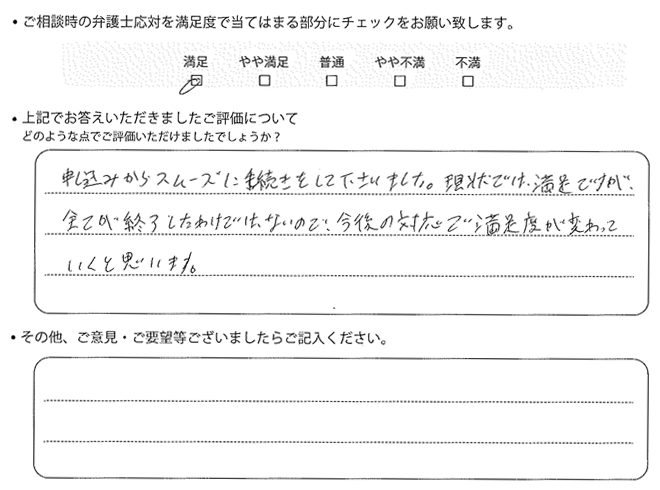 • ご相談時の弁護士応対を満足度で当てはまる部分にチェックをお願い致します。
満足 やや満足 普通 やや不満 不満
• 上記でお答えいただきましたご評価について
どのような点でご評価いただけましたでしょうか？
申し込みからスムーズに手続きをして下さいました。現状では、満足ですが、
全てが終了したわけではないので、今後の対応で満足度が変わって
いくと思います。
• その他、ご意見・ご要望等ございましたらご記入ください。